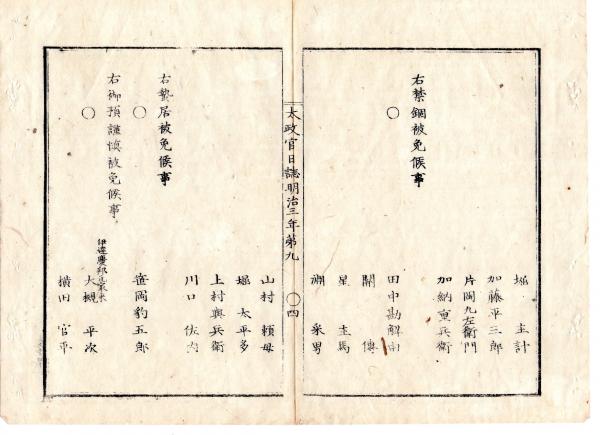 堀 主計
加藤平三郎
片岡九左衛門
加納重兵衛
右禁錮被免候事
〇
田中勘解由
關 傳
星 圭馬
淵 釆男
太政官日誌明治三年第九
〇四
山村 頼母
堀 太平多
上村與兵衛
川口 佐内
右蟄居被免候事
〇
笹岡豹五郎
右御預謹慎被免候事
〇
大槻 平次
横田 官平